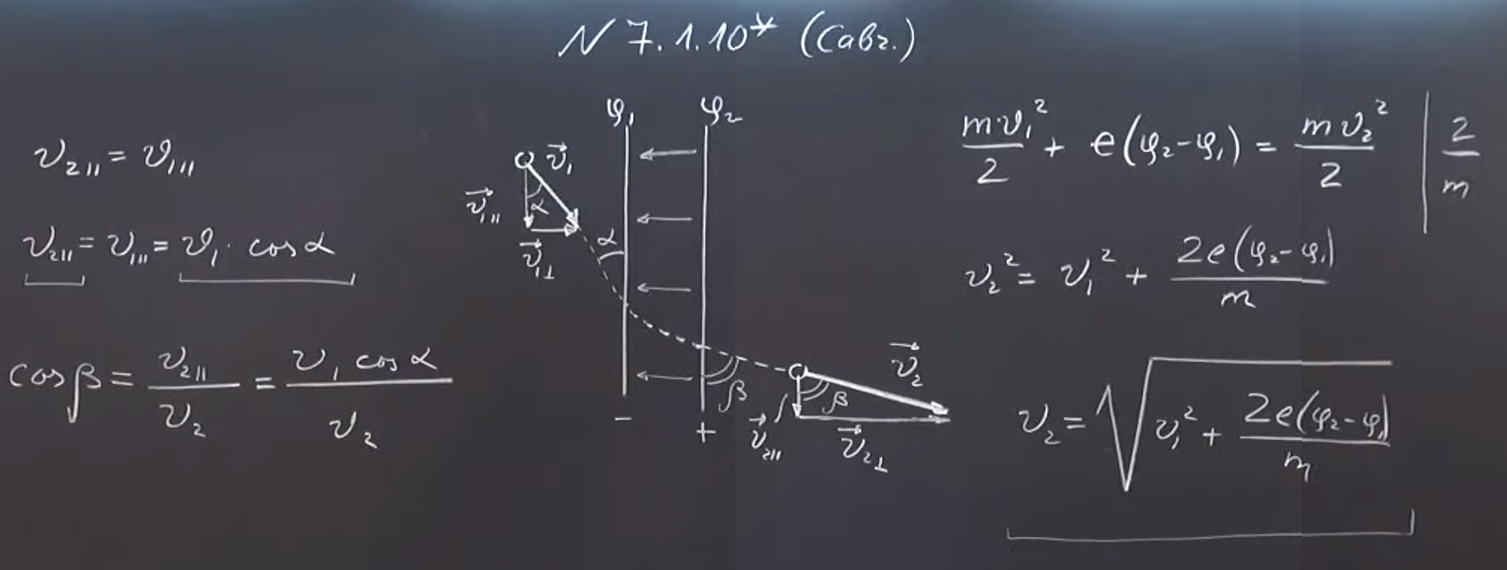 N 7.1.10* (Савч.)
v₂∥ = v₁∥
v₂∥ = v₁∥ = v₁ · cos α
cos β = v₂∥ / v₂ = v₁ cos α / v₂
φ₁ φ₂
v⃗₁
α
v⃗₁∥
v⃗₁⊥
α
β
β
v⃗₂
v⃗₂∥
v⃗₂⊥
− +
mv₁²/2 + e(φ₂-φ₁) = mv₂²/2 | 2/m
v₂² = v₁² + 2e(φ₂-φ₁)/m
v₂ = √(v₁² + 2e(φ₂-φ₁)/m)